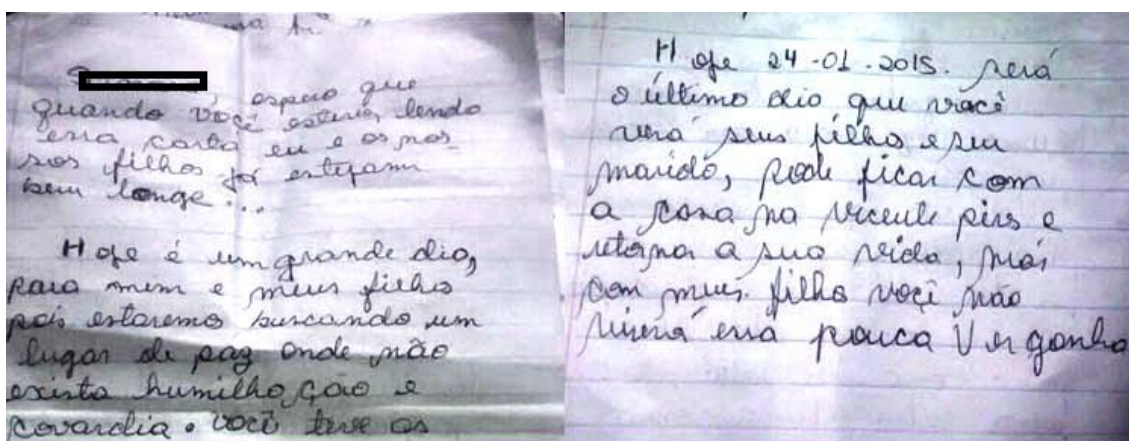 espero que
quando você estiver lendo
essa carta eu e os nos_
sos filhos já estejam
bem longe...
Hoje é um grande dia,
para mim e meus filho
pois estaremo buscando um
lugar de paz onde não
exista humilhação e
covardia. você teve as
Hoje 24-01-2015. será
o último dia que você
verá seus filho e seu
marido, pode ficar com
a casa na vicente pires e
retorna a sua vida, mas
com meus filho você não
viverá essa pouca Vergonha